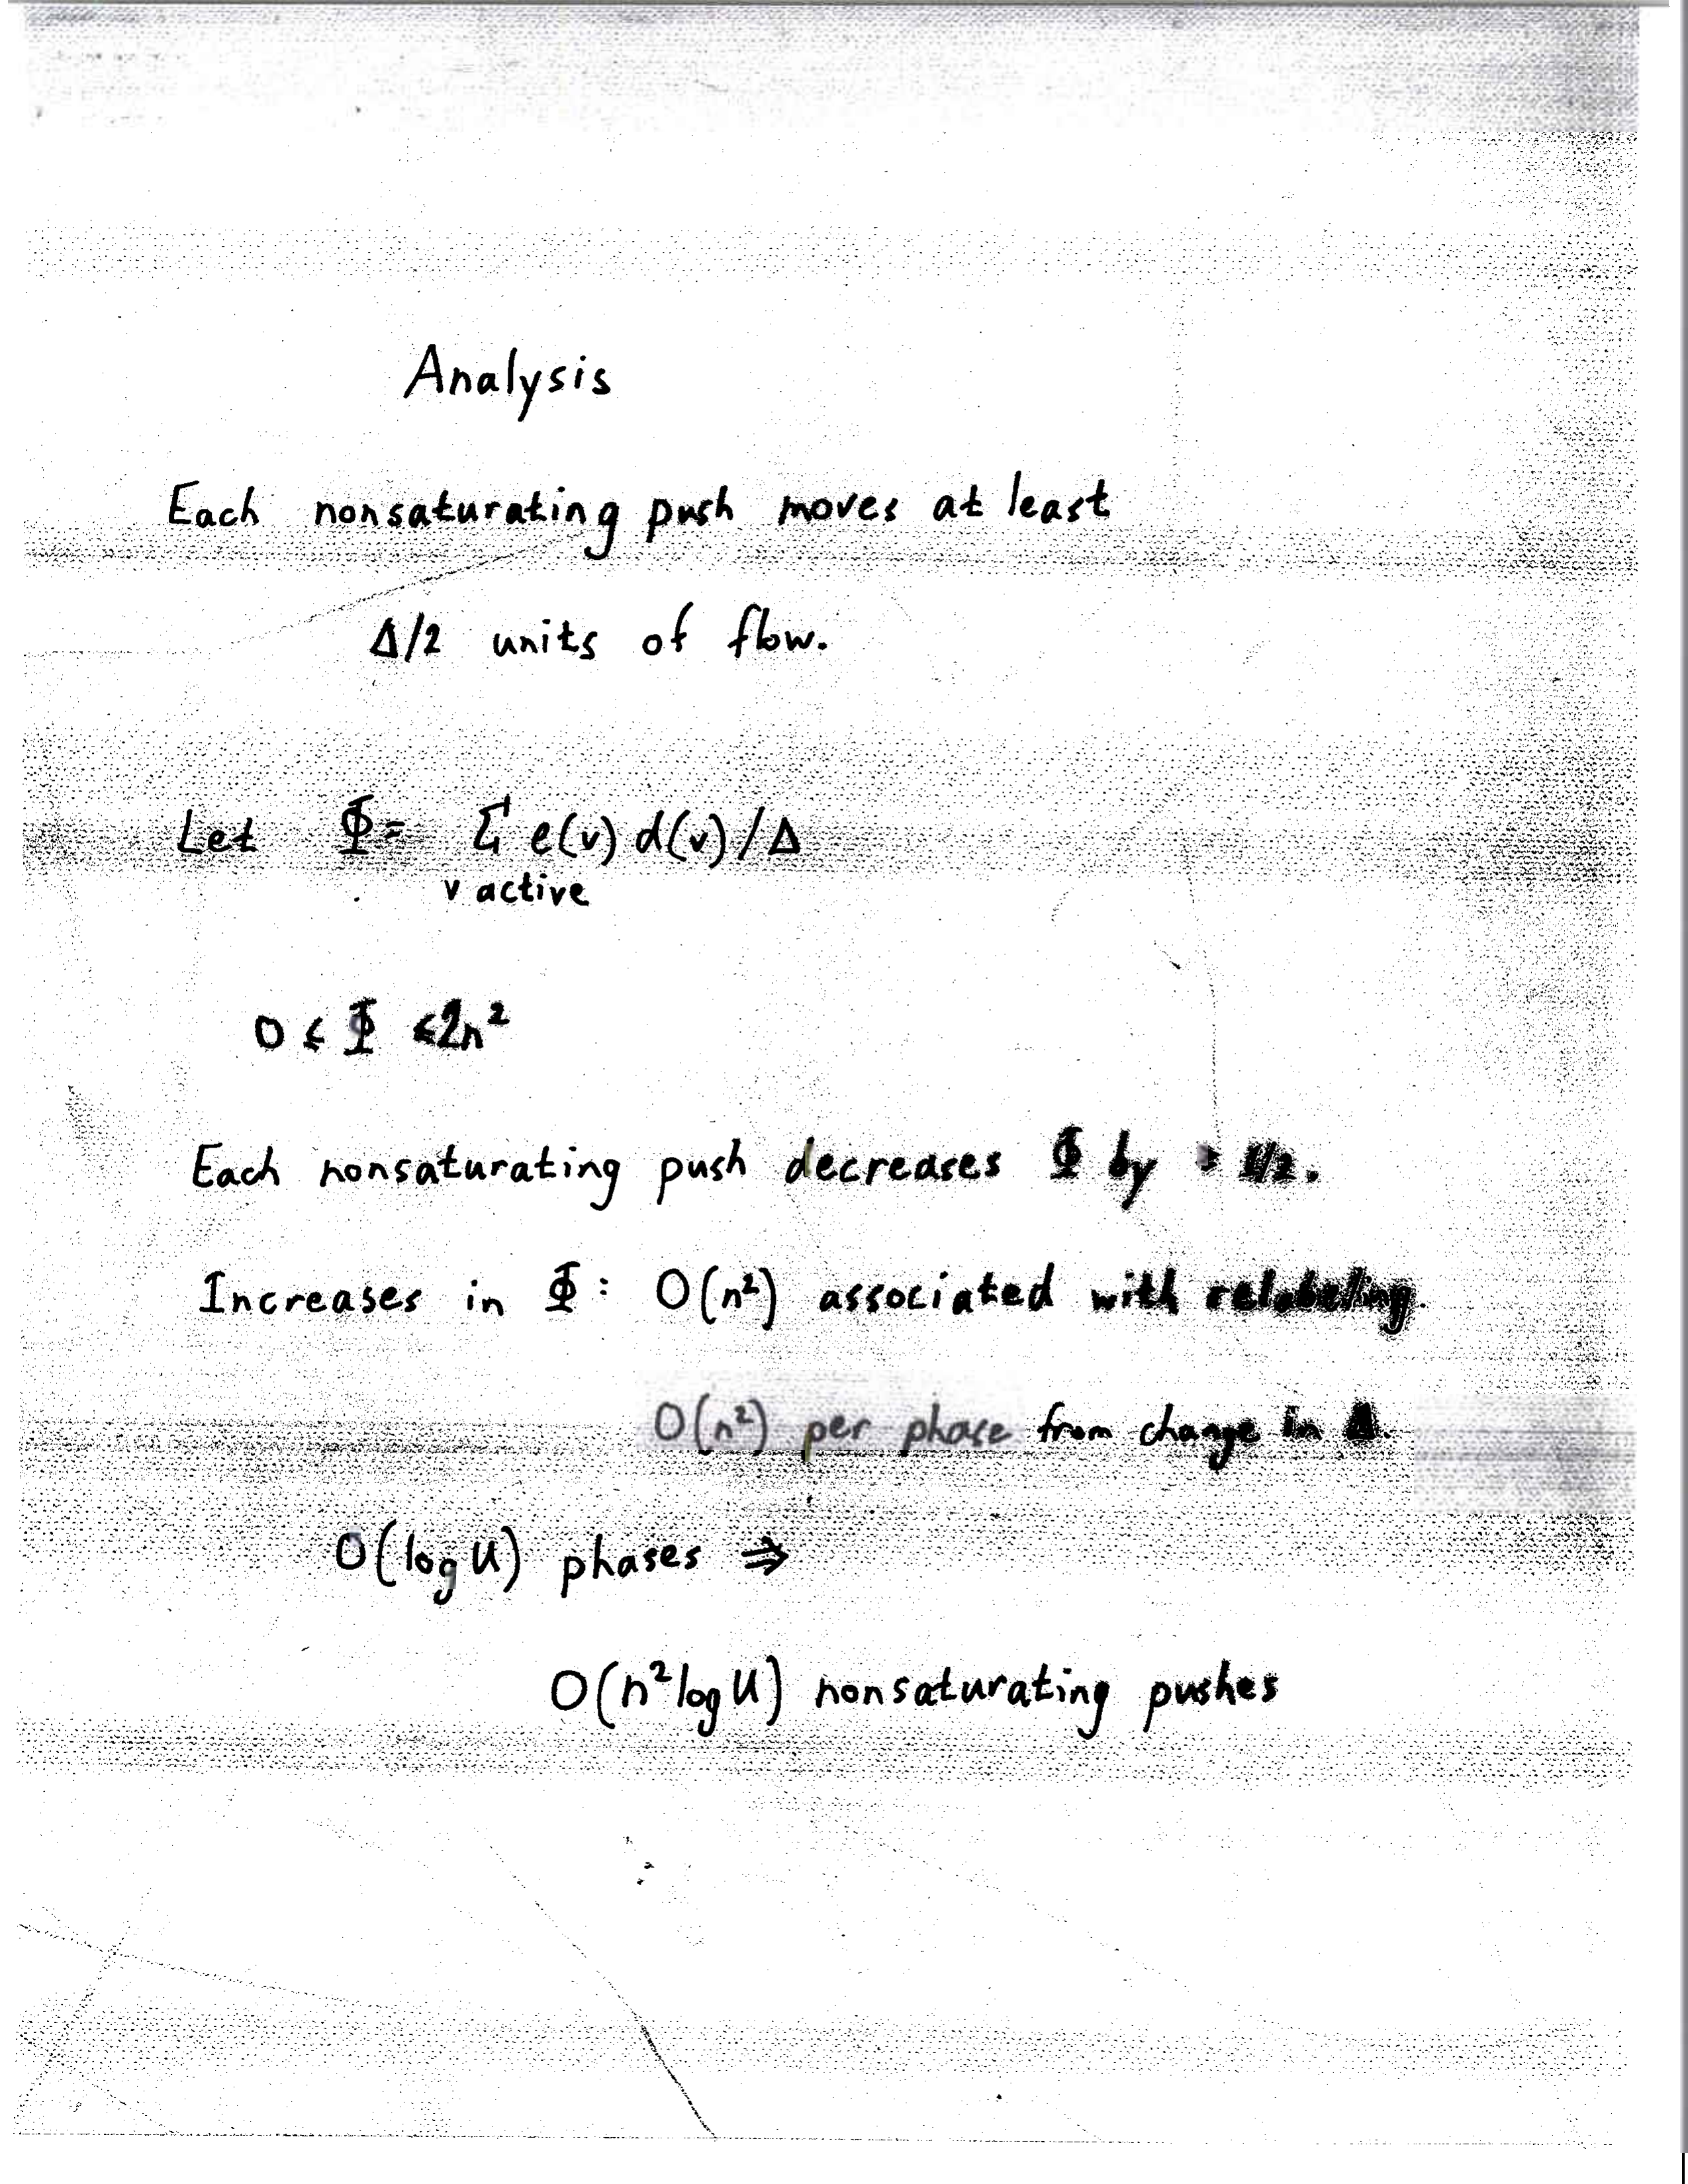 Analysis
Each nonsaturating push moves at least
Δ/2 units of flow.
Let Φ = Σ e(v) d(v)/Δ
v active
0 ≤ Φ ≤ 2n²
Each nonsaturating push decreases Φ by ≥ 1/2.
Increases in Φ: O(n²) associated with relabeling.
O(n²) per phase from change in Δ.
O(log U) phases ⇒
O(n² log U) nonsaturating pushes